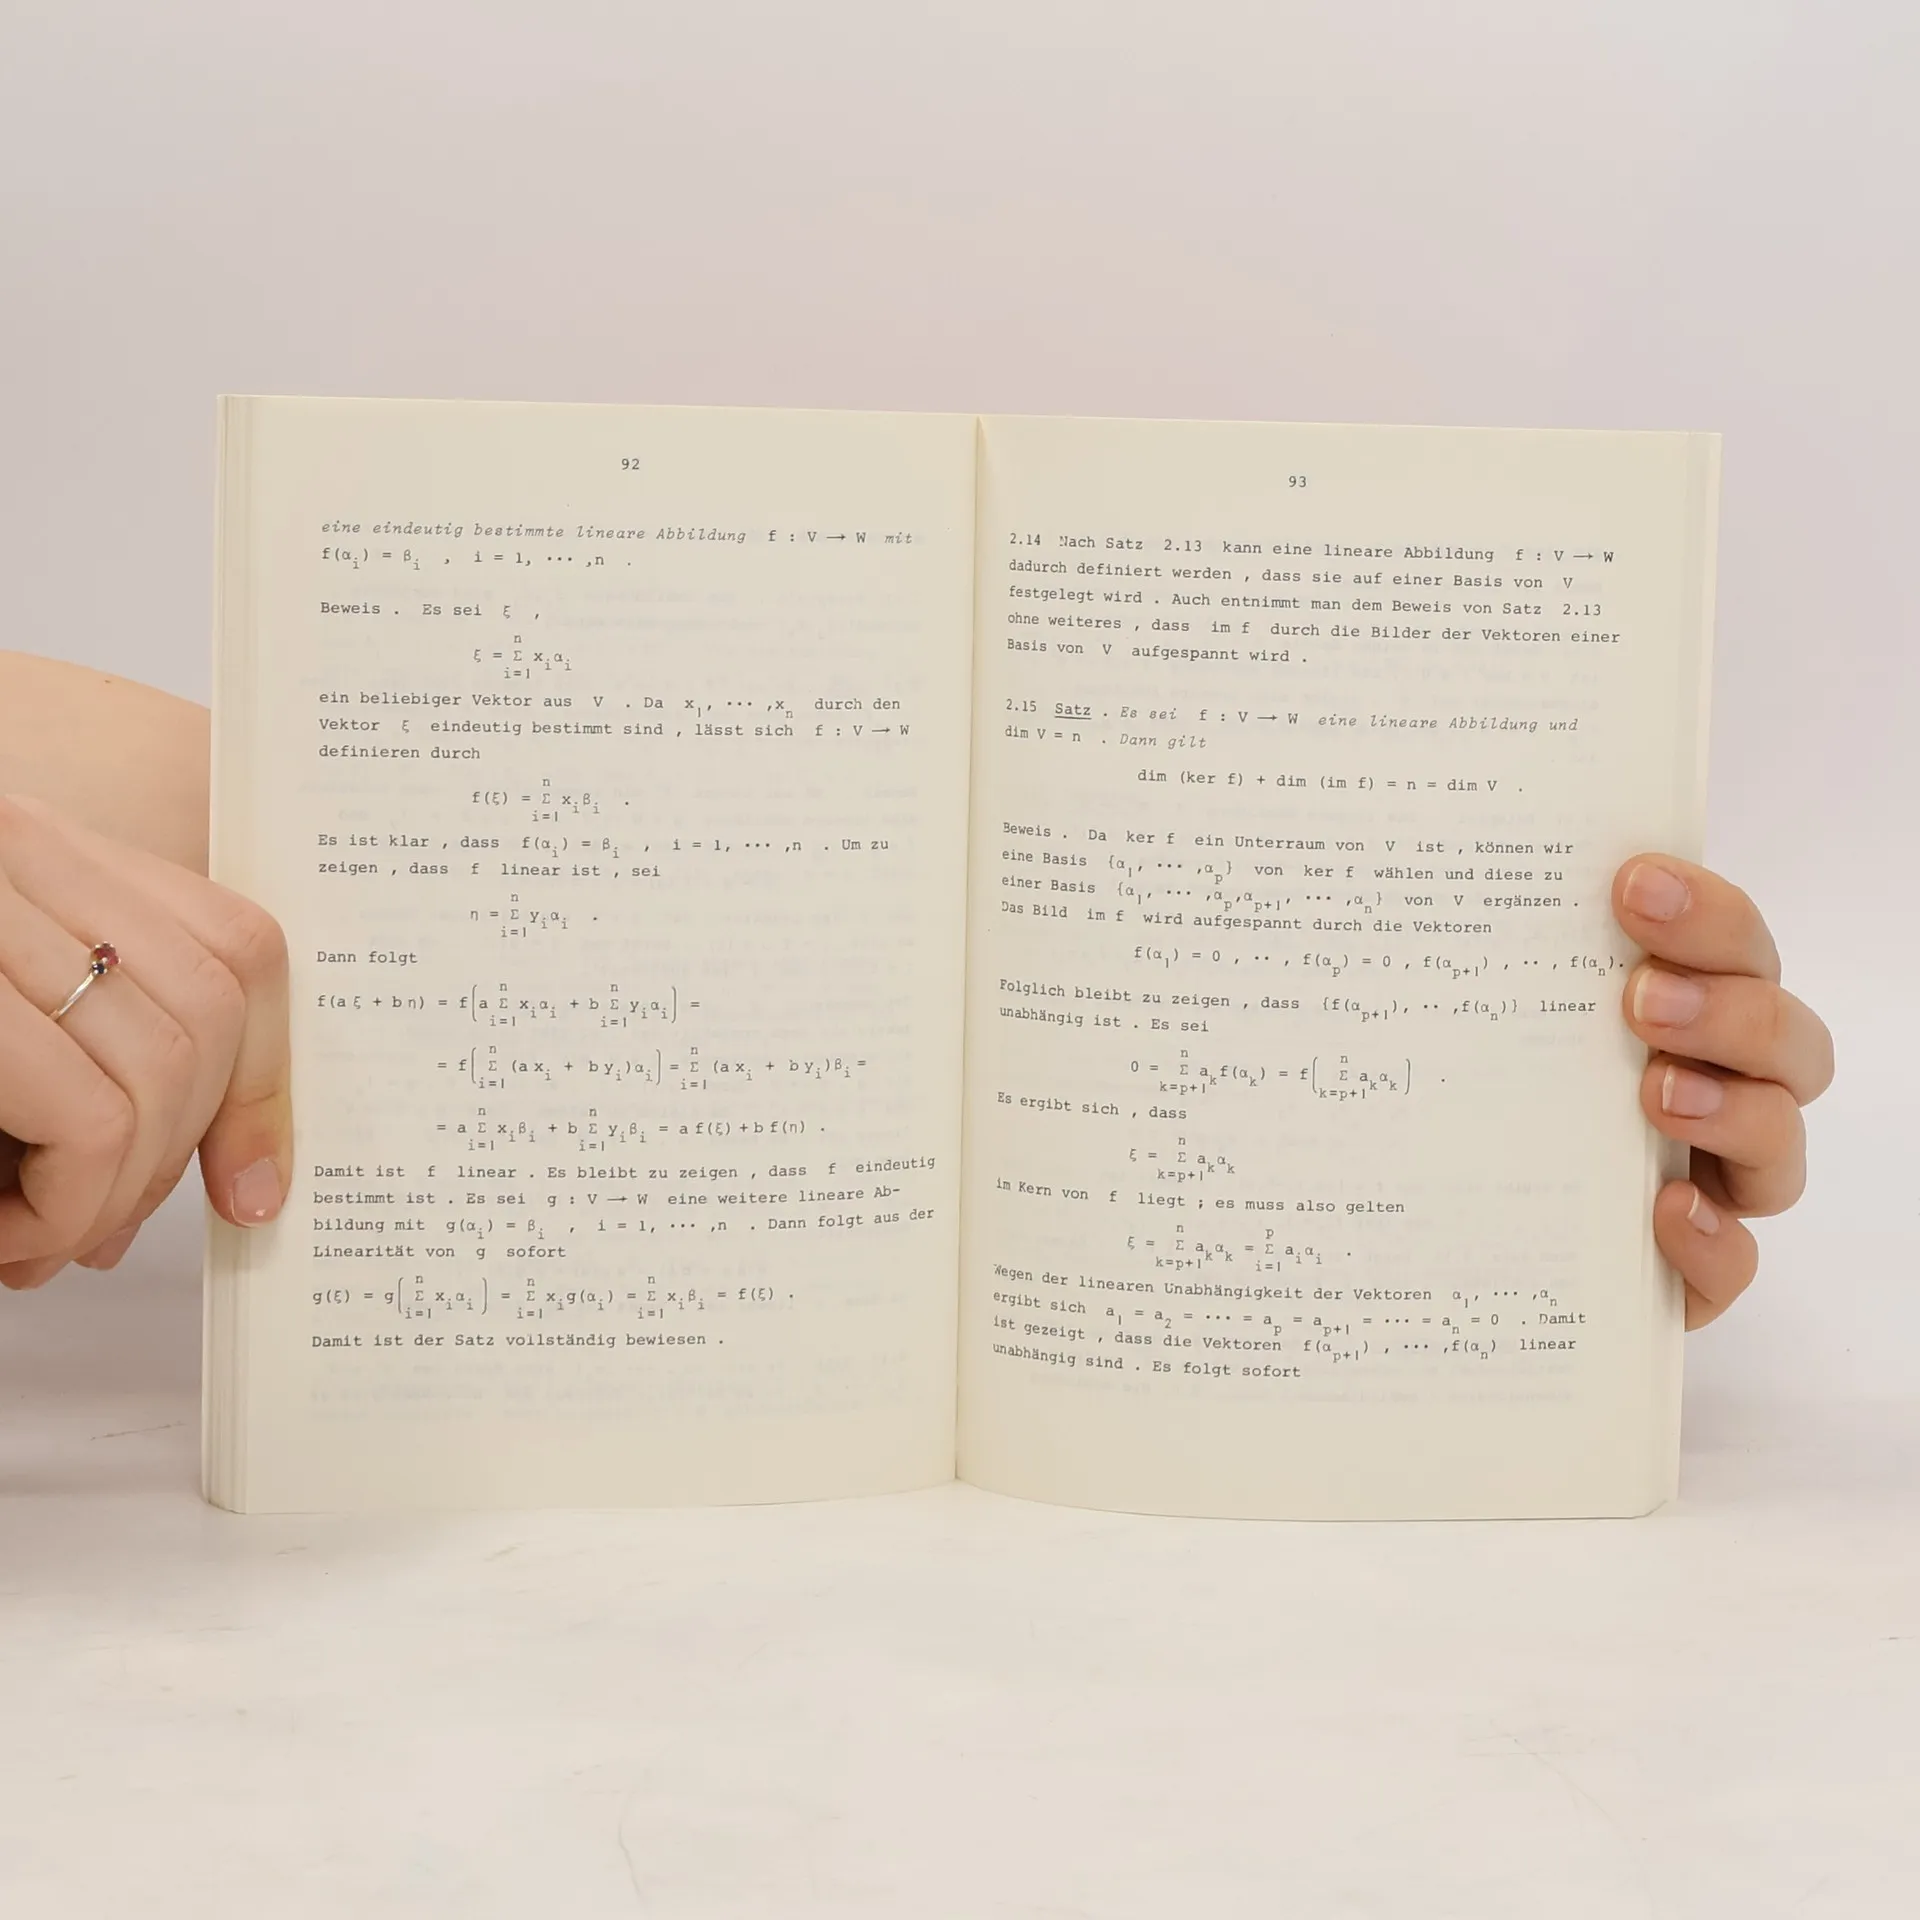 92
eine eindeutig bestimmte lineare Abbildung f : V → W mit
f(αᵢ) = βᵢ , i = 1, ⋯ ,n .
Beweis . Es sei ξ ,
n
ξ = Σ xᵢαᵢ
i=1
ein beliebiger Vektor aus V . Da x₁, ⋯ ,xₙ durch den
Vektor ξ eindeutig bestimmt sind , lässt sich f : V → W
definieren durch
n
f(ξ) = Σ xᵢβᵢ .
i=1
Es ist klar , dass f(αᵢ) = βᵢ , i = 1, ⋯ ,n . Um zu
zeigen , dass f linear ist , sei
n
η = Σ yᵢαᵢ .
i=1
Dann folgt
n n
f(aξ + bη) = f(a Σ xᵢαᵢ + b Σ yᵢαᵢ) =
i=1 i=1
n n
= f( Σ (axᵢ + byᵢ)αᵢ) = Σ (axᵢ + byᵢ)βᵢ =
i=1 i=1
n n
= a Σ xᵢβᵢ + b Σ yᵢβᵢ = af(ξ) + bf(η) .
i=1 i=1
Damit ist f linear . Es bleibt zu zeigen , dass f eindeutig
bestimmt ist . Es sei g : V → W eine weitere lineare Ab-
bildung mit g(αᵢ) = βᵢ , i = 1, ⋯ ,n . Dann folgt aus der
Linearität von g sofort
n n n
g(ξ) = g( Σ xᵢαᵢ) = Σ xᵢg(αᵢ) = Σ xᵢβᵢ = f(ξ) .
i=1 i=1 i=1
Damit ist der Satz vollständig bewiesen .
93
2.14 Nach Satz 2.13 kann eine lineare Abbildung f : V → W
dadurch definiert werden , dass sie auf einer Basis von V
festgelegt wird . Auch entnimmt man dem Beweis von Satz 2.13
ohne weiteres , dass im f durch die Bilder der Vektoren einer
Basis von V aufgespannt wird .
2.15 Satz . Es sei f : V → W eine lineare Abbildung und
dim V = n . Dann gilt
dim (ker f) + dim (im f) = n = dim V .
Beweis . Da ker f ein Unterraum von V ist , können wir
eine Basis {α₁, ⋯ ,αₚ} von ker f wählen und diese zu
einer Basis {α₁, ⋯ ,αₚ,αₚ₊₁, ⋯ ,αₙ} von V ergänzen .
Das Bild im f wird aufgespannt durch die Vektoren
f(α₁) = 0 , ‥ , f(αₚ) = 0 , f(αₚ₊₁) , ‥ , f(αₙ).
Folglich bleibt zu zeigen , dass {f(αₚ₊₁), ‥ ,f(αₙ)} linear
unabhängig ist . Es sei
n n
0 = Σ aₖf(αₖ) = f( Σ aₖαₖ) .
k=p+1 k=p+1
Es ergibt sich , dass
n
ξ = Σ aₖαₖ
k=p+1
im Kern von f liegt ; es muss also gelten
n p
ξ = Σ aₖαₖ = Σ aᵢαᵢ .
k=p+1 i=1
Wegen der linearen Unabhängigkeit der Vektoren α₁, ⋯ ,αₙ
ergibt sich a₁ = a₂ = ⋯ = aₚ = aₚ₊₁ = ⋯ = aₙ = 0 . Damit
ist gezeigt , dass die Vektoren f(αₚ₊₁) , ⋯ ,f(αₙ) linear
unabhängig sind . Es folgt sofort